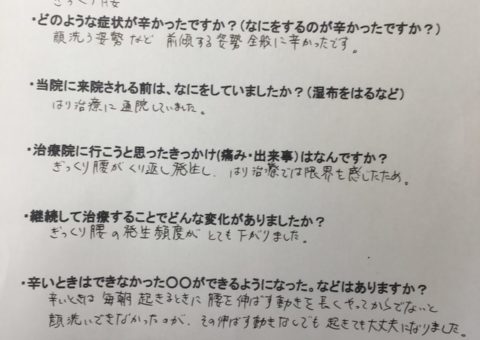 ぎっくり腰
・どのような症状が辛かったですか？(なにをするのが辛かったですか？)
顔洗う姿勢など 前傾する姿勢全般に辛かったです。
・当院に来院される前は、なにをしていましたか？(湿布をはるなど)
はり治療に通院していました。
・治療院に行こうと思ったきっかけ(痛み・出来事)はなんですか？
ぎっくり腰がくり返し発生し、はり治療では限界を感じたため。
・継続して治療することでどんな変化がありましたか？
ぎっくり腰の発生頻度がとても下がりました。
・辛いときはできなかった〇〇ができるようになった。などはありますか？
辛いときは毎朝起きるときに腰を伸ばす動きを長くやってからでないと
顔洗いできなかったのが、その伸ばす動きなしでも起きても大丈夫になりました。